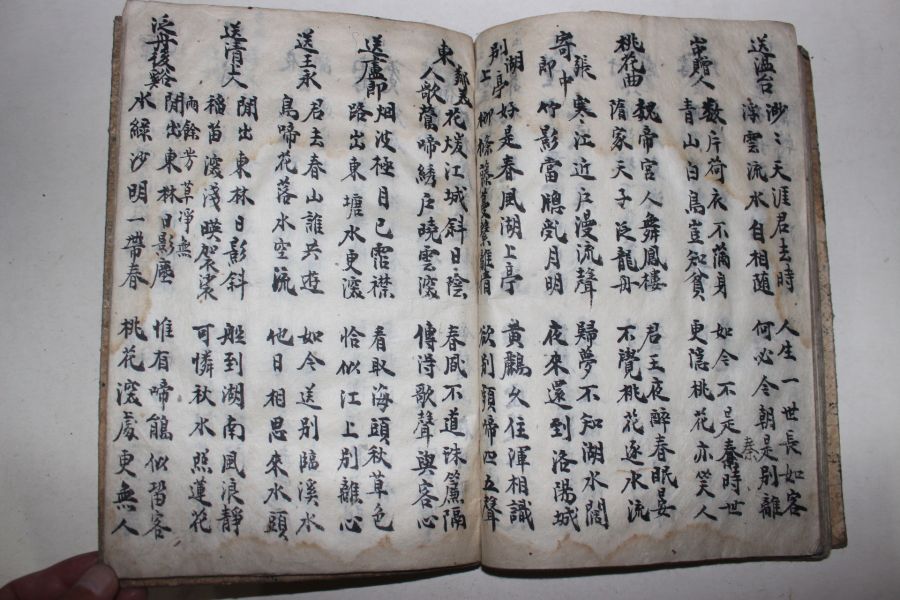 送温台
渺〻天涯君去時 人生一世長如客
浮雲流水自相随 何必今朝是別離
贈人
數片荷衣不蔽身 如今不是秦時世
秦
青山白鳥豈知貧 更隱桃花亦笑人
桃花曲
魏帝宮人舞鳳樓 君王夜醉春眠晏
隋家天子泛龍舟 不覺桃花逐水流
寄張即中
寒江近戶漫流聲 歸夢不知湖水闊
竹影當窓亂月明 夜來還到洛陽城
湖上別亭
好是春風湖上亭 黃鸝久住渾相識
柳條藤蔓繫離情 欲別頻啼四五聲
東鄰美人歌
花煖江城斜日陰 春風不道珠簾隔
鶯啼繡戶曉雲深 傳得歌聲與客心
送盧即
烟波極目已霑襟 看取海頭秋草色
路出東塘水更深 恰似江上別離心
送王永
君去春山誰共遊 如今送別臨溪水
鳥啼花落水空流 他日相思來水頭
送清大
閒出東林日影斜 舩到湖南風浪靜
稲苗深淺映袈裟 可憐秋水照蓮花
泛丹後谿
雨餘芳草淨無
閒出東林日影塵 惟有啼鵑似留客
水綠沙明一帶春 桃花深處更無人